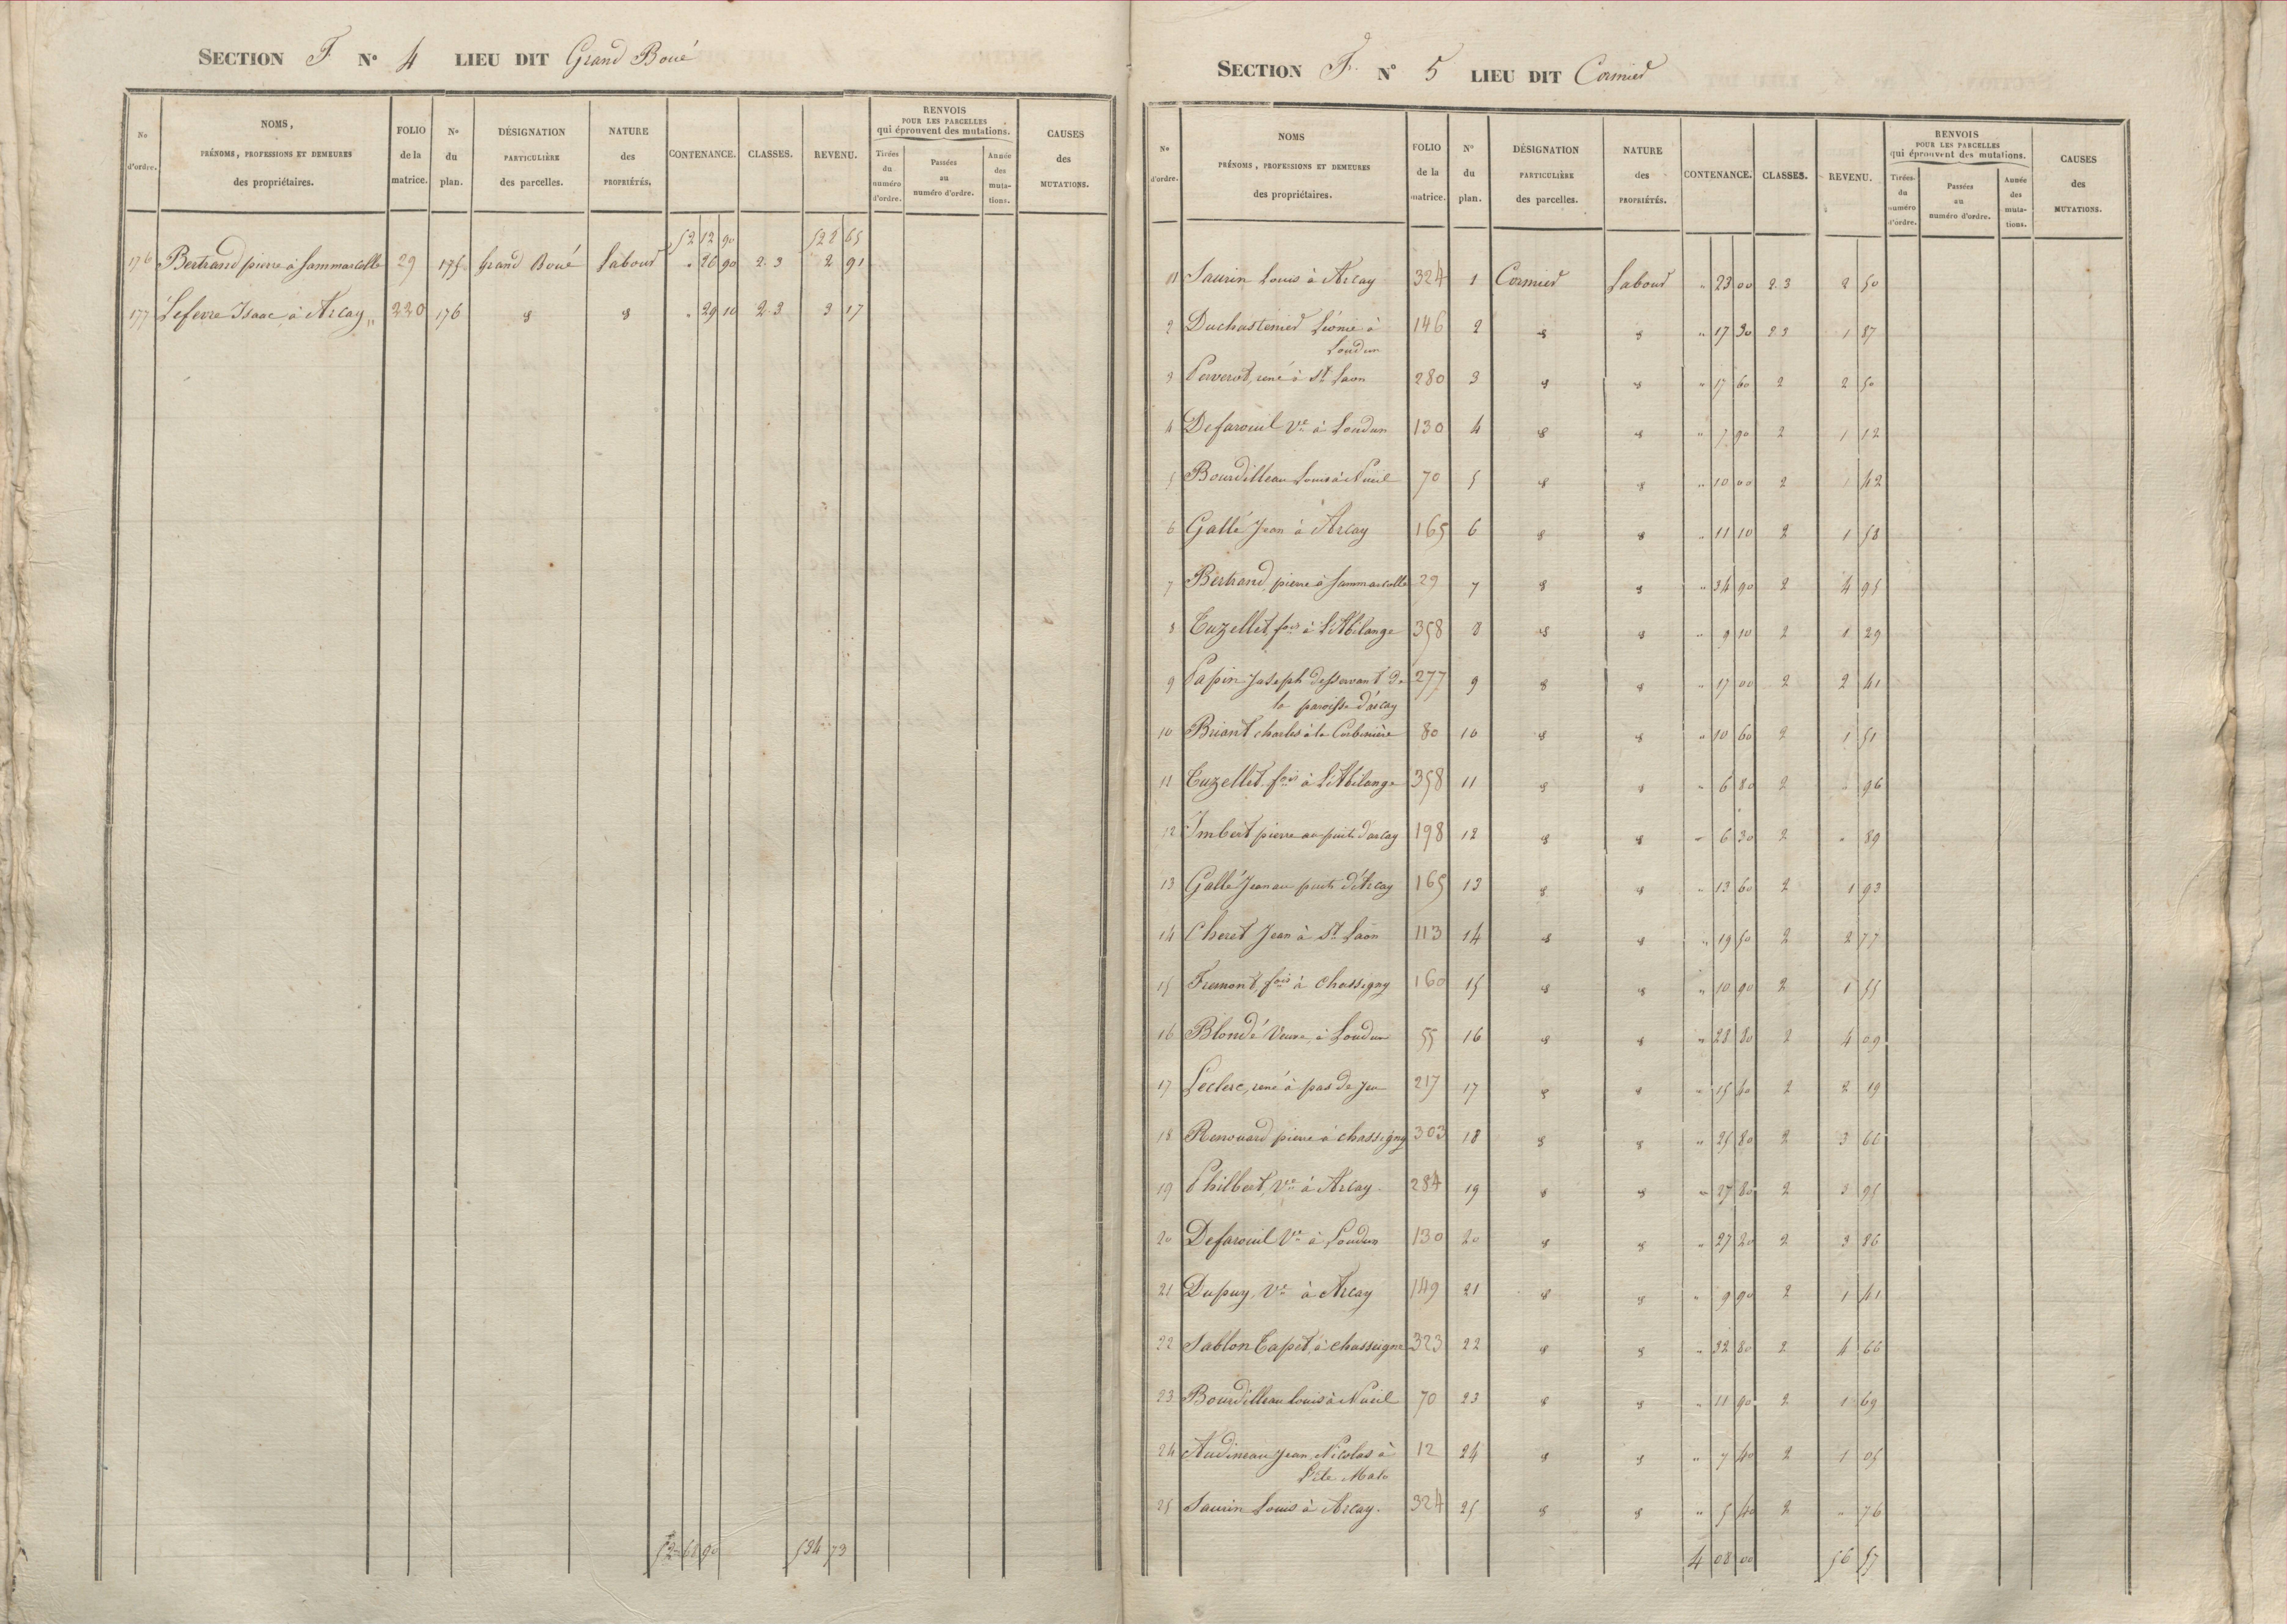 SECTION F N° 4 LIEU DIT Grand Boué
N° d'ordre. NOMS, PRÉNOMS, PROFESSIONS ET DEMEURES des propriétaires. FOLIO de la matrice. N° du plan. DÉSIGNATION PARTICULIÈRE des parcelles. NATURE des PROPRIÉTÉS. CONTENANCE. CLASSES. REVENU. RENVOIS POUR LES PARCELLES qui éprouvent des mutations. Tirées du numéro d'ordre. Passées au numéro d'ordre. Année des mutations. CAUSES des MUTATIONS.
52 12 90 528 65
176 Bertrand pierre à Sammarcolle 29 175 Grand Boué Labour " 26 90 2.3 2 91
177 Lefevre Isaac, à Arcay 220 176 " 29 10 2.3 3 17
52 68 90 534 73
SECTION F. N° 5 LIEU DIT Cormier
N° d'ordre. NOMS PRÉNOMS, PROFESSIONS ET DEMEURES des propriétaires. FOLIO de la matrice. N° du plan. DÉSIGNATION PARTICULIÈRE des parcelles. NATURE des PROPRIÉTÉS. CONTENANCE. CLASSES. REVENU. RENVOIS POUR LES PARCELLES qui éprouvent des mutations. Tirées du numéro d'ordre. Passées au numéro d'ordre. Année des mutations. CAUSES des MUTATIONS.
1 Saurin Louis à Arcay 324 1 Cormier Labour " 23 00 2.3 2 50
2 Duchastenier Léonie à 146 2 " 17 30 2.3 1 87
Loudun
3 René à St Laon 280 3 " 17 60 2 2 50
4 Defarouil Ve à Loudun 130 4 " 7 90 2 1 12
5 Bourdilleau Louis à Nueil 70 5 " 10 00 2 1 42
6 Gallé Jean à Arcay 165 6 " 11 10 2 1 58
7 Bertrand, pierre à Sammarcolle 29 7 " 34 90 2 4 95
8 Tuzellet fois à 358 8 " 9 10 2 1 29
9 Papin Joseph desservant de 277 9 " 17 00 2 2 41
la paroisse d'arcay
10 Briant charles à la Corbinière 80 10 " 10 60 2 1 51
11 Tuzellet fois à 358 11 " 6 80 2 " 96
12 Imbert pierre au puits d'arcay 198 12 " 6 30 2 " 89
13 Gallé Jean au puits d'Arcay 165 13 " 13 60 2 1 93
14 Cheret Jean à St Laon 113 14 " 19 50 2 2 77
15 Fremont, fois à Chassigny 160 15 " 10 90 2 1 55
16 Blondé Veuve, à Loudun 55 16 " 28 80 2 4 09
17 Leclerc, rené à pas de Jeu 217 17 " 15 40 2 2 19
18 Renouard pierre à chassigny 303 18 " 25 80 2 3 66
19 Philbert, Ve à Arcay 284 19 " 27 80 2 3 95
20 Defarouil Ve à Loudun 130 20 " 27 20 2 3 86
21 Dupuy, Ve à Arcay 149 21 " 9 90 2 1 41
22 Sablon Tapet, à chassigne 323 22 " 32 80 2 4 66
23 Bourdilleau Louis à Nueil 70 23 " 11 90 2 1 69
24 Audineau Jean Nicolas à 12 24 " 7 40 2 1 05
25 Saurin Louis à Arcay. 324 25 " 5 40 2 " 76
4 08 00 56 57